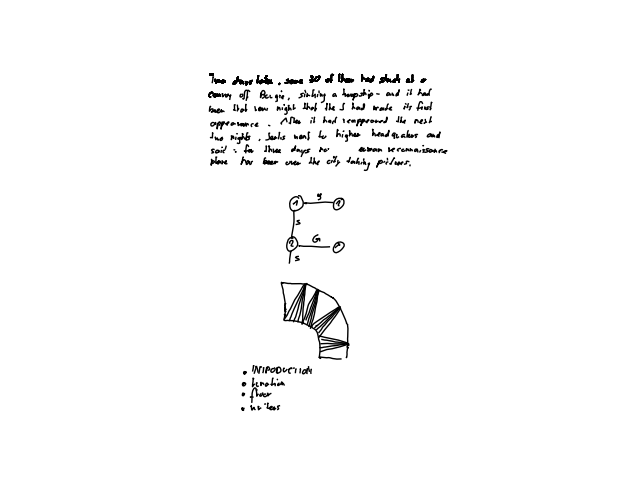 Two days later, some 30 of them had stuck at a
convoy off Bougie, sinking a troopship - and it had
been that very night that the J had made its first
appearance. After it had reappeared the next
two nights, Seeks went to higher headquarters and
said: for three days no German reconnaissance
plane has been over the city taking pictures.
1 g 1
s
2 G
s
• INTRODUCTION
• location
• floor